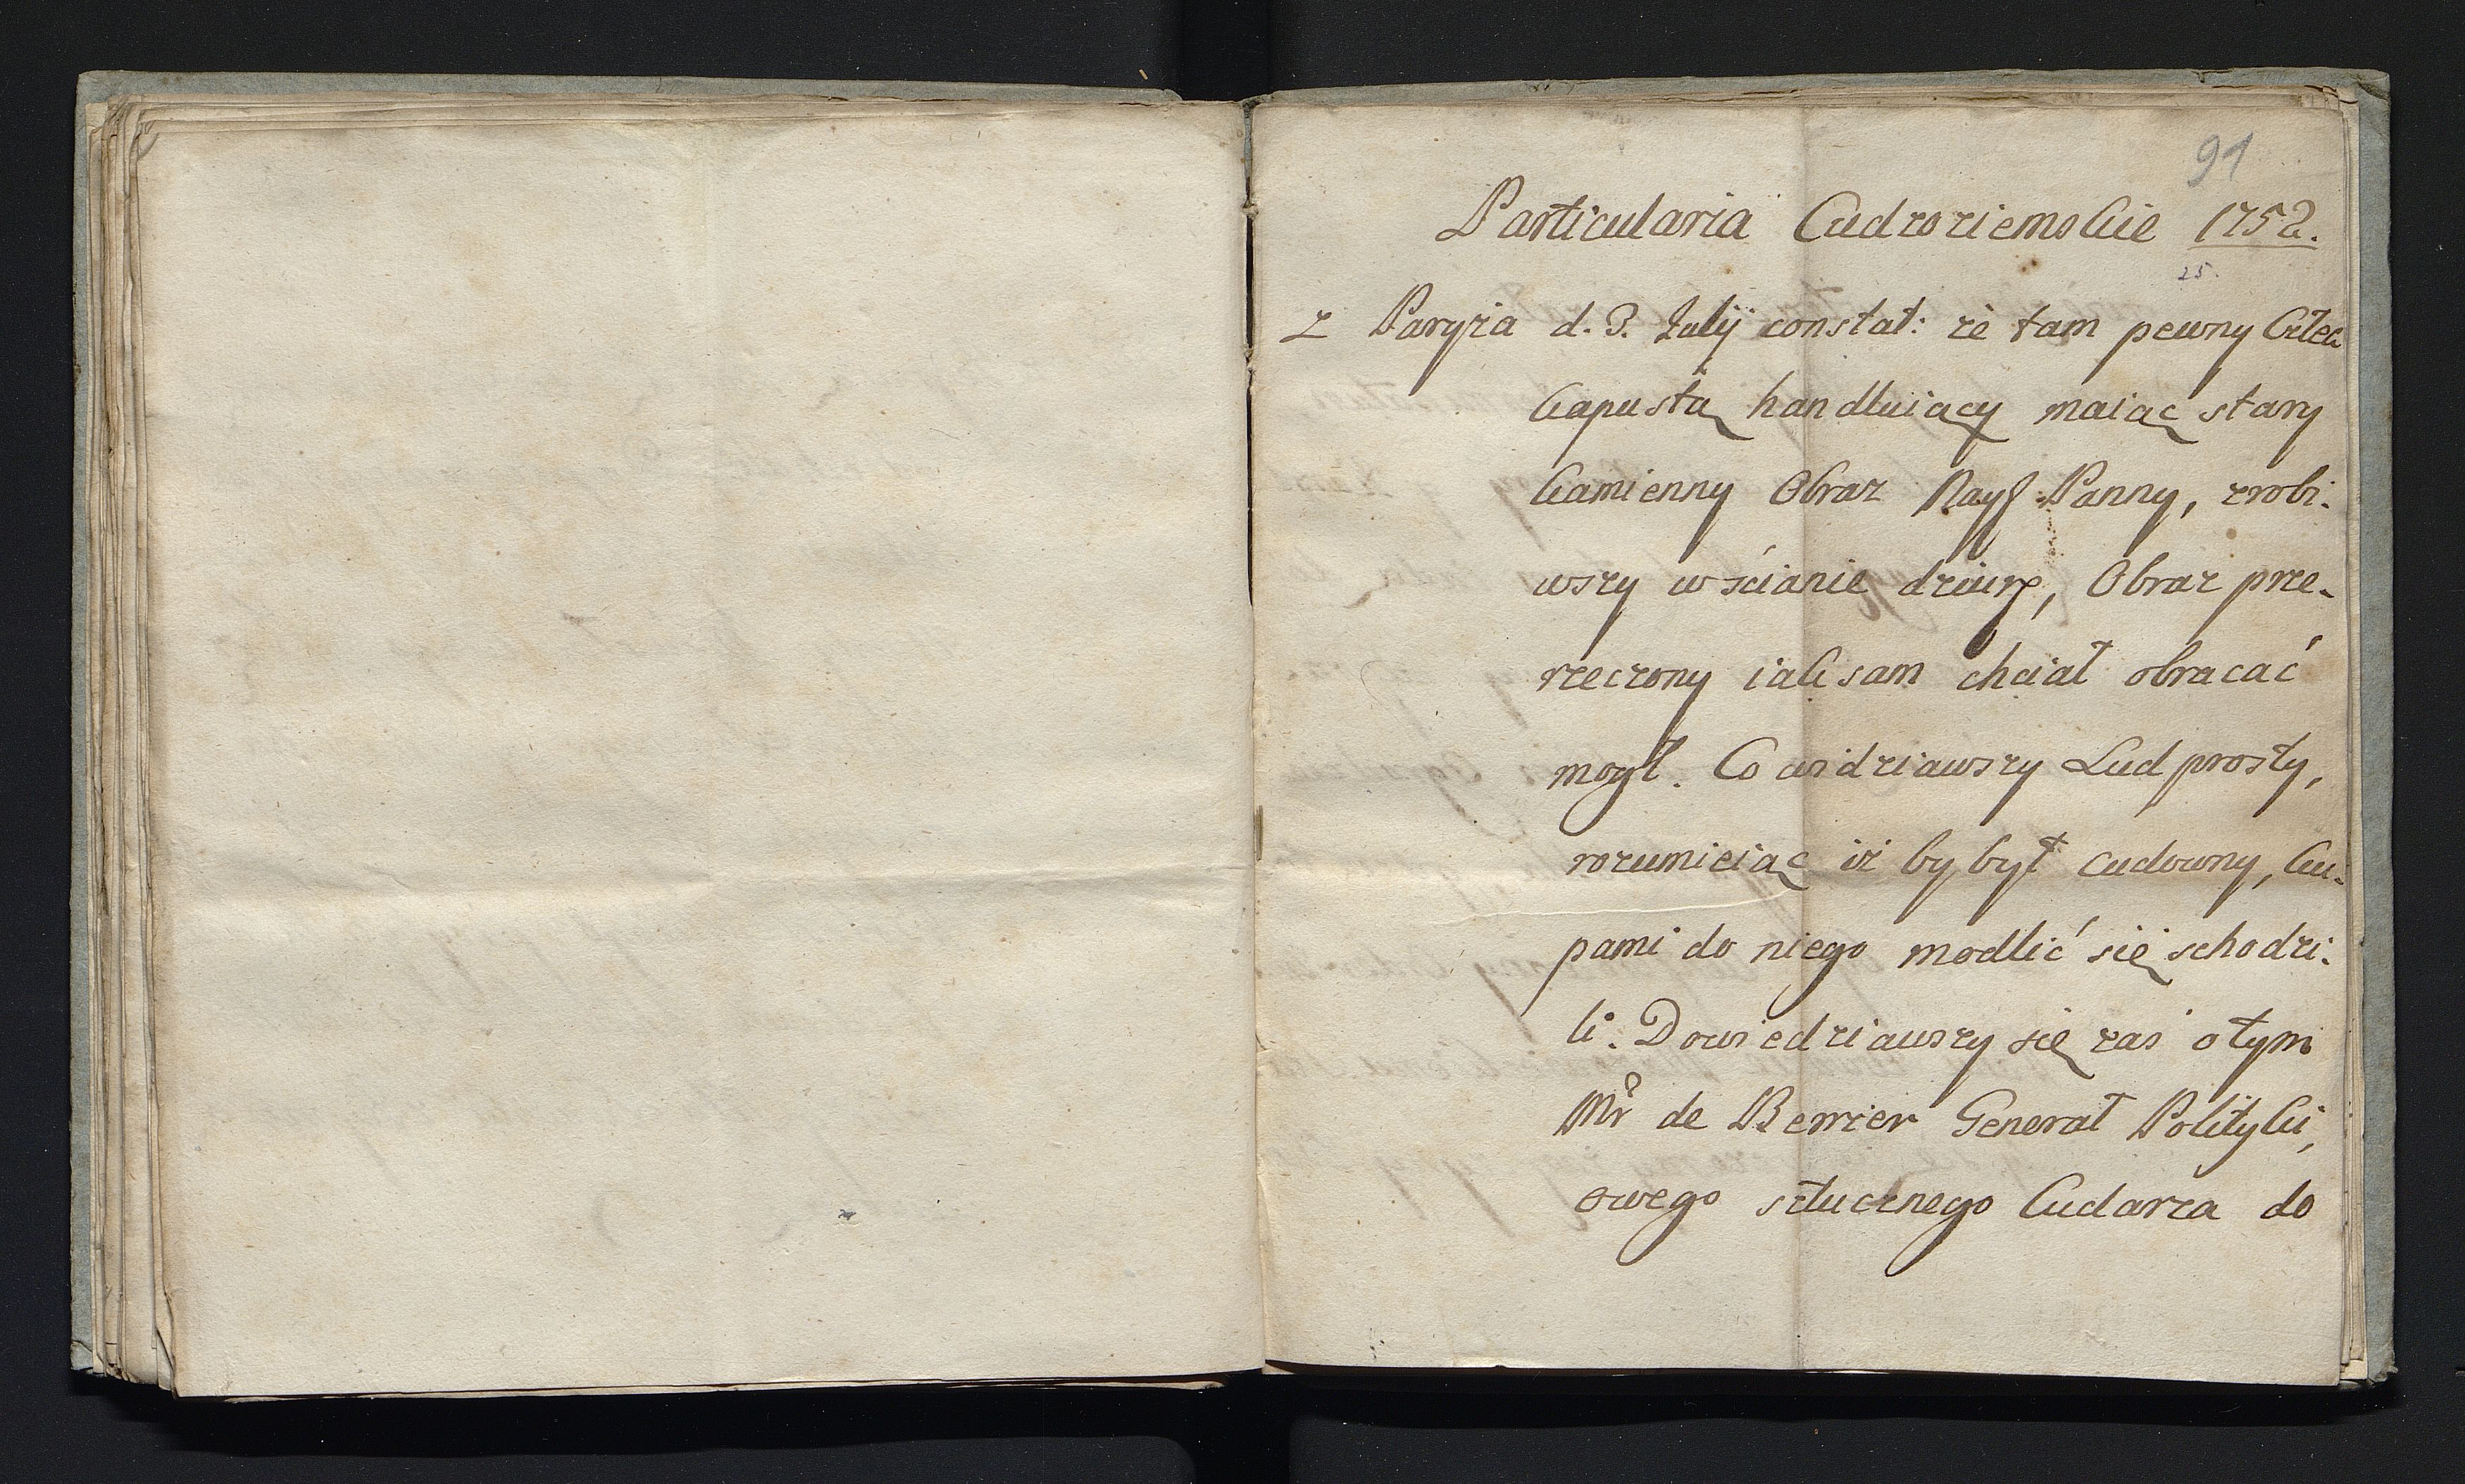 91
Particularia Cudzoziemskie 1752.
25.
z Paryża d. 3. Julij constat: że tam pewny Człek
kapustą handluiący maiąc stary
kamienny Obraz Nayś Panny, zrobi-
wszy w ścianie dziurę, Obraz prze-
rzeczony iak sam chciał obracać
mogł. Co widziawszy Lud prosty,
rozumieiąc iż by był cudowny, ku-
pami do niego modlić się schodzi-
li. Dowiedziawszy się zaś o tym
Mr de Berrier Generał Polityki,
owego sztucznego Cudarza do